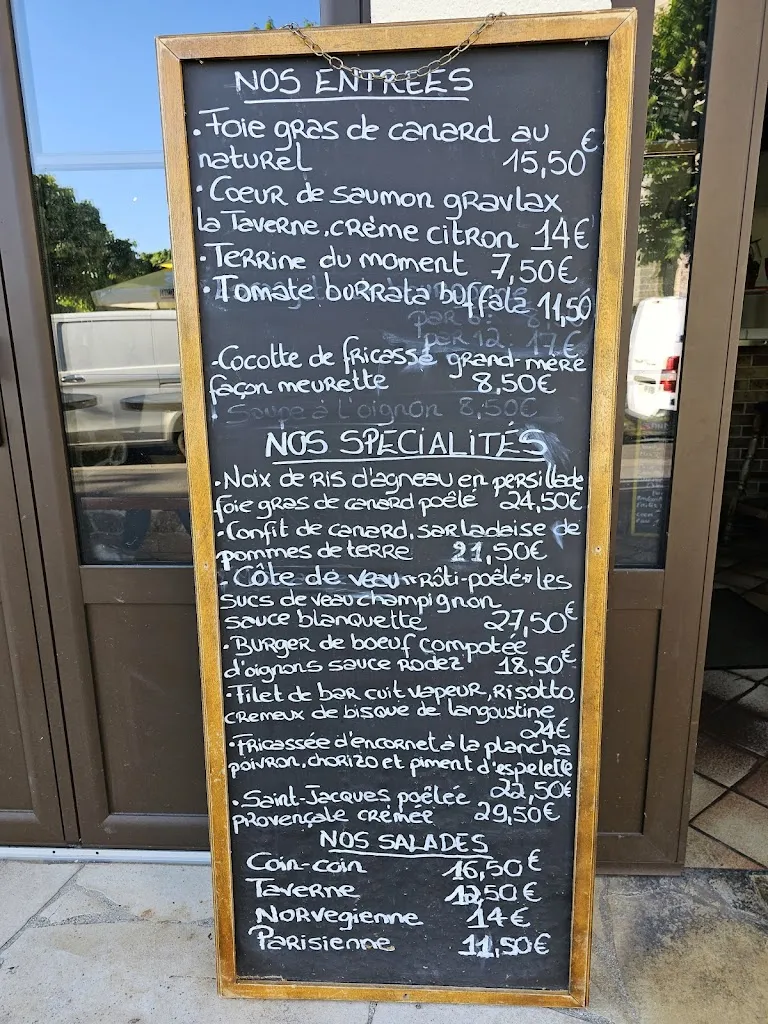 NOS ENTREES
• Foie gras de canard au
naturel 15,50€
• Coeur de saumon gravlax
la Taverne, crème citron 14€
• Terrine du moment 7,50€
• Tomate burrata buffala 11,50
par 12 : 17€
- Cocotte de fricassé grand-mère
façon meurette 8,50€
Soupe à l'oignon 8,50€
NOS SPECIALITÉS
• Noix de Ris d'agneau en persillade
foie gras de canard poêlé 24,50€
• Confit de canard, sarladaise de
pommes de terre 21,50€
- Côte de veau "rôti-poêlé" les
sucs de veau champignon
sauce blanquette 27,50€
• Burger de boeuf compotée
d'oignons sauce Rodez 18,50€
• Filet de bar cuit vapeur, Risotto,
cremeux de bisque de langoustine
24€
• Fricassée d'encornet à la plancha
poivron, chorizo et piment d'espelette
22,50€
• Saint-Jacques poêlée
provençale crémée 29,50€
NOS SALADES
Coin-coin 16,50€
Taverne 12,50€
Norvegienne 14€
Parisienne 11,50€